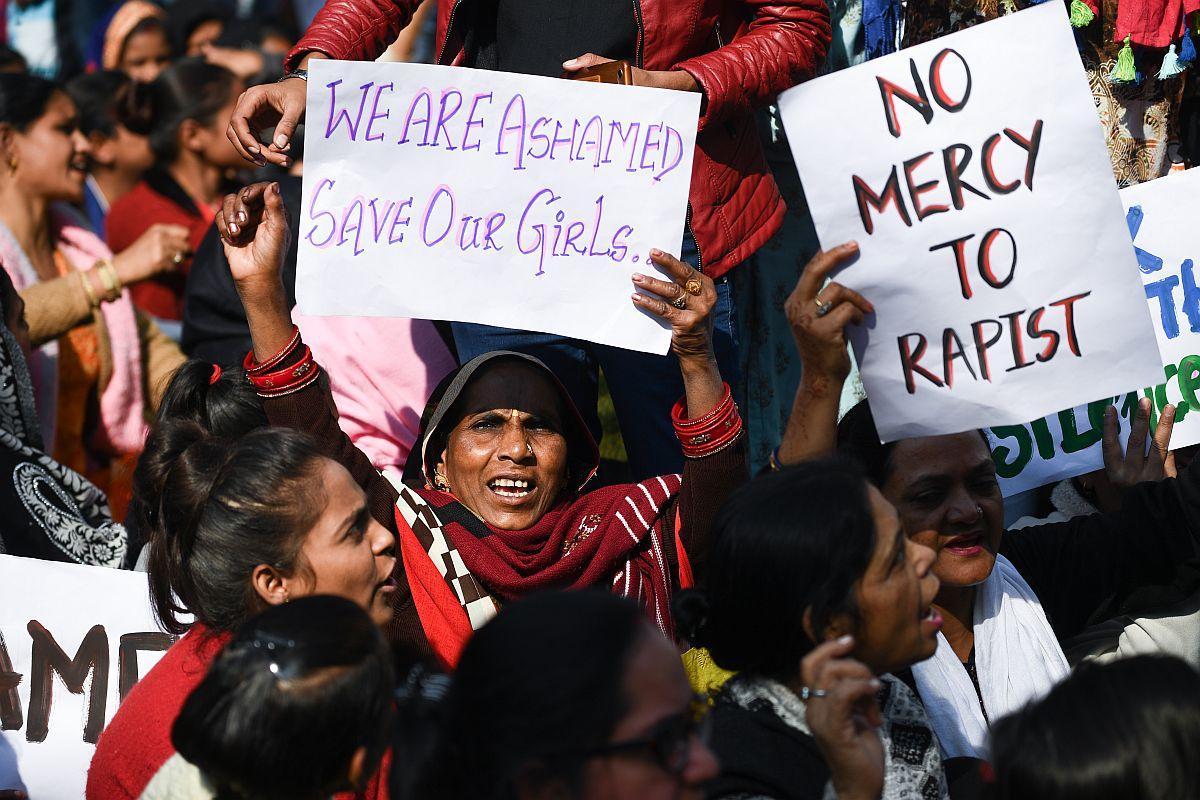 WE ARE ASHAMED
SAVE OUR GIRLS..
NO
MERCY
TO
RAPIST
SILENCE
AMED